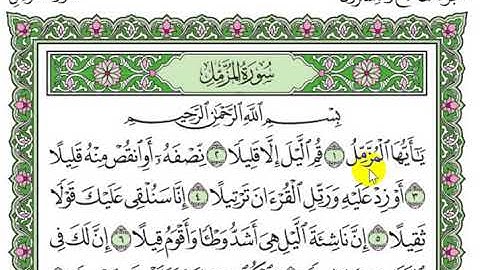 سُورَةُ الْمُزَّمِّلِ
بِسْمِ اللَّهِ الرَّحْمَٰنِ الرَّحِيمِ
يَٰٓأَيُّهَا الْمُزَّمِّلُ ١ قُمِ الَّيْلَ إِلَّا قَلِيلًا ٢ نِّصْفَهُۥٓ أَوِ انقُصْ مِنْهُ قَلِيلًا
٣ أَوْ زِدْ عَلَيْهِ وَرَتِّلِ الْقُرْءَانَ تَرْتِيلًا ٤ إِنَّا سَنُلْقِى عَلَيْكَ قَوْلًا
ثَقِيلًا ٥ إِنَّ نَاشِئَةَ الَّيْلِ هِىَ أَشَدُّ وَطْـًٔا وَأَقْوَمُ قِيلًا ٦ إِنَّ لَكَ فِى